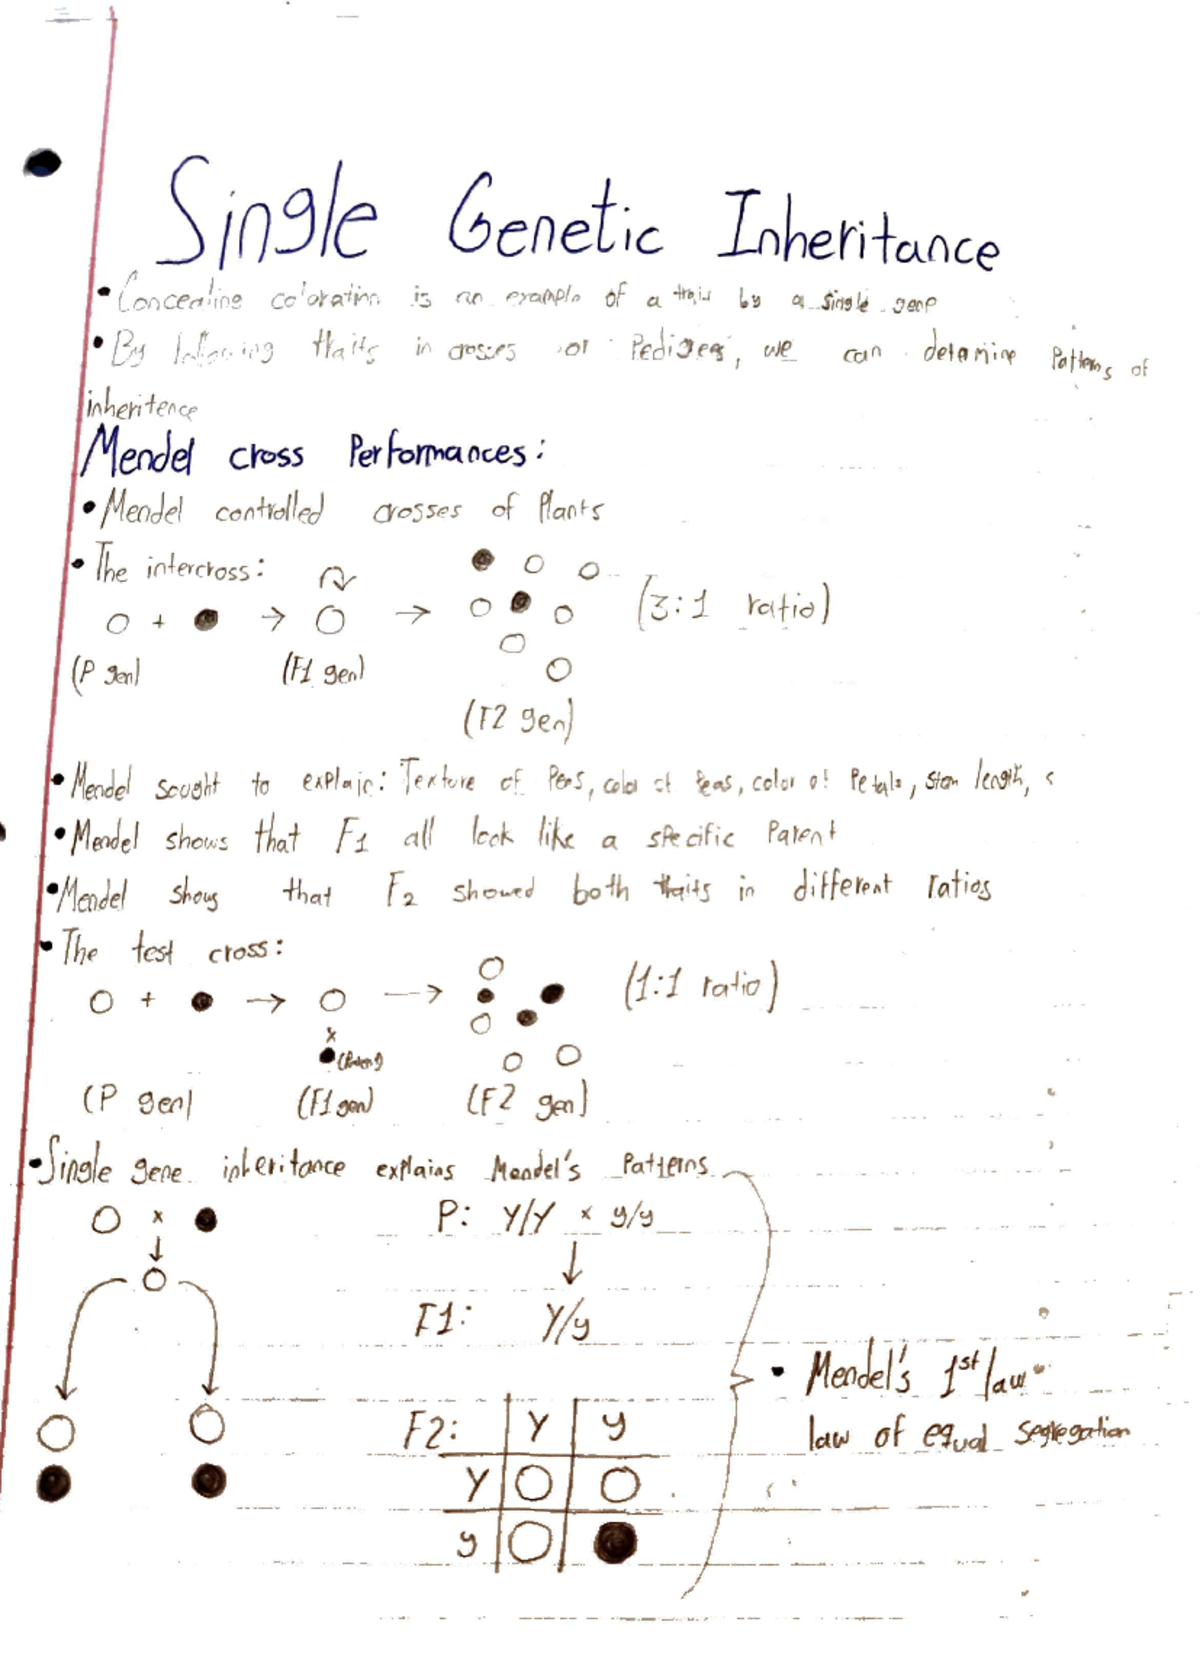 Single Genetic Inheritance
• Concealing coloration is an example of a trait by a single gene
• By following traits in crosses or Pedigees, we can determine Patterns of
inheritence
Mendel cross Performances:
• Mendel controlled crosses of Plants
• The intercross:
+ → → (3:1 ratio)
(P gen) (F1 gen)
(F2 gen)
• Mendel sought to explain: Texture of Peas, color of Peas, color of Petals, stem length,
• Mendel shows that F1 all look like a specific Parent
• Mendel shows that F2 showed both traits in different ratios
• The test cross:
+ → → (1:1 ratio)
x
(Parent)
(P gen) (F1 gen) (F2 gen)
• Single gene inheritance explains Mendel's Patterns
x P: Y/Y x y/y
F1: Y/y
• Mendel's 1st law
F2: Y y law of equal segregation
Y
y